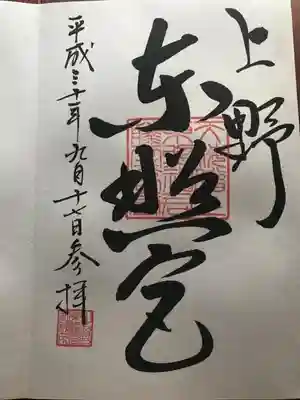 上野
東照宮
平成三十年九月十七日参拝